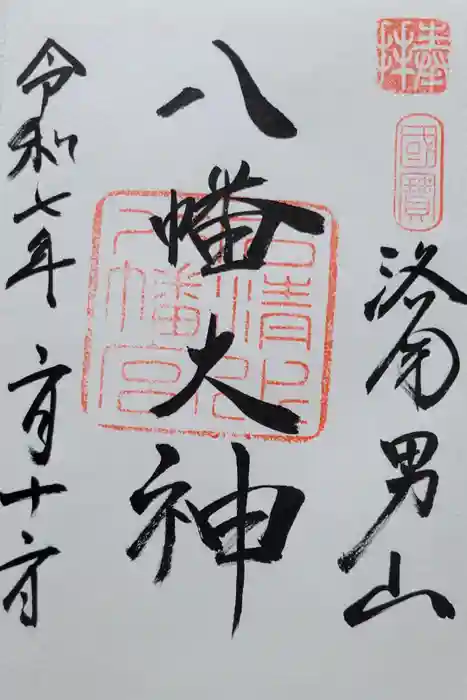 奉拝
國寶
洛南男山
八幡大神
石清水
八幡宮
令和七年六月十六日